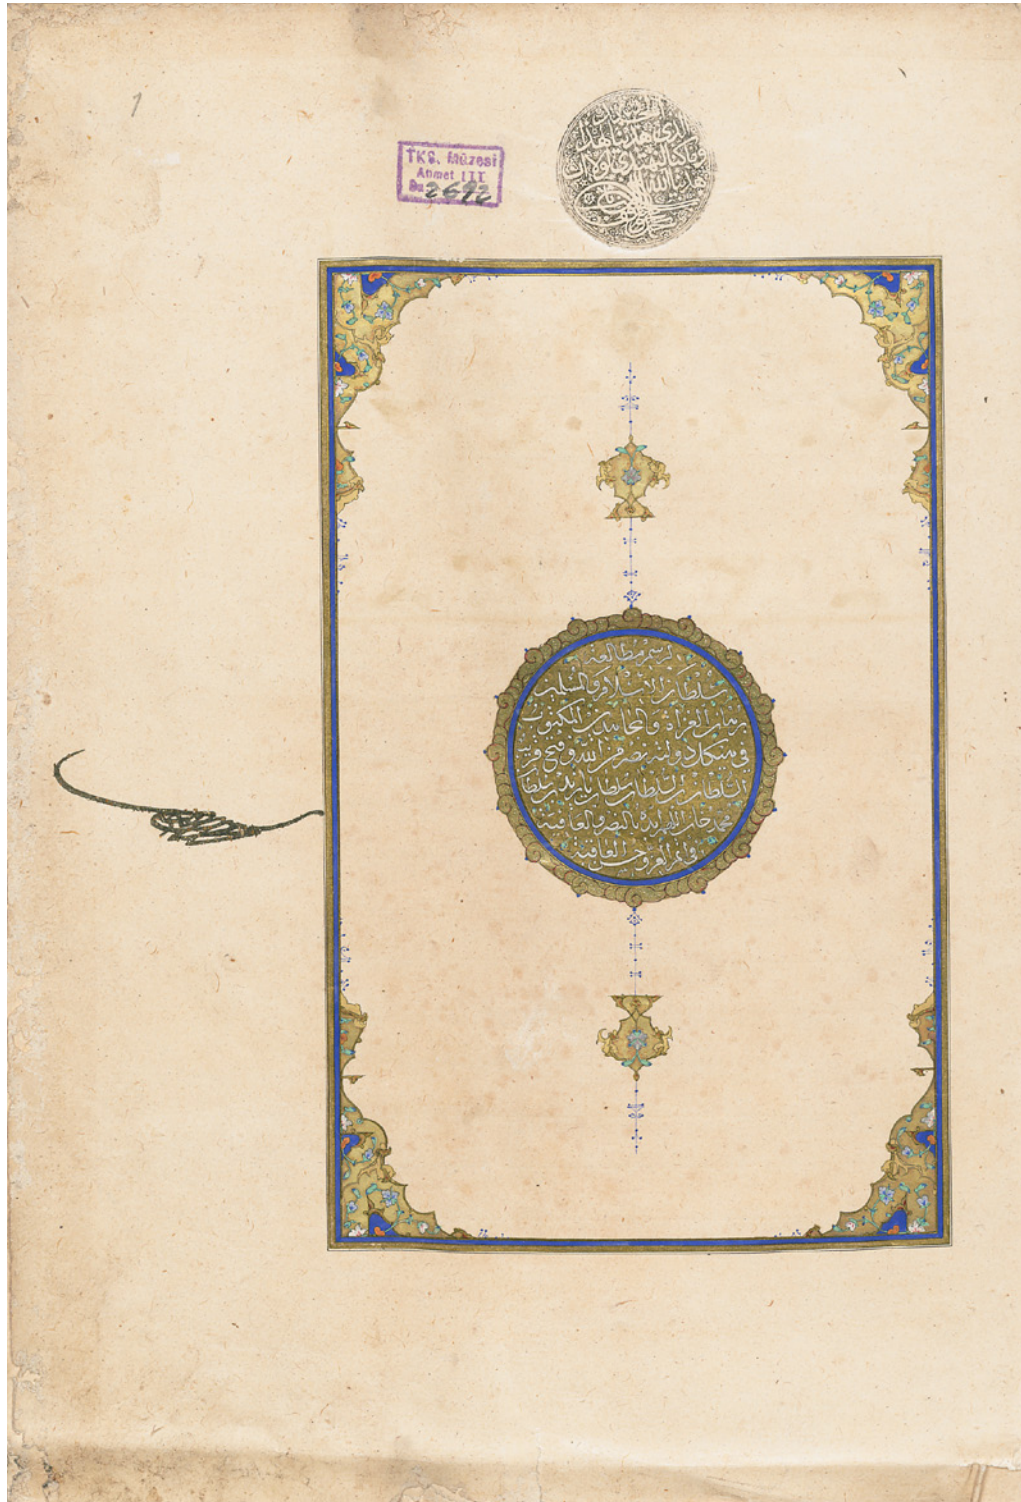 1
TKS. Müzesi
Ahmet III
2692
الحمد لله
الذي هدانا لهذا
وما كنا لنهتدي لولا ان
هدانا الله
برسم مطالعة
سلطان الاسلام والمسلمين
الغزاة والمجاهدين المكتوب
في دولته نصر من الله وفتح قريب
السلطان بن السلطان سلطان بايزيد بن سلطان
محمد خان ايده بالنصر والعافية